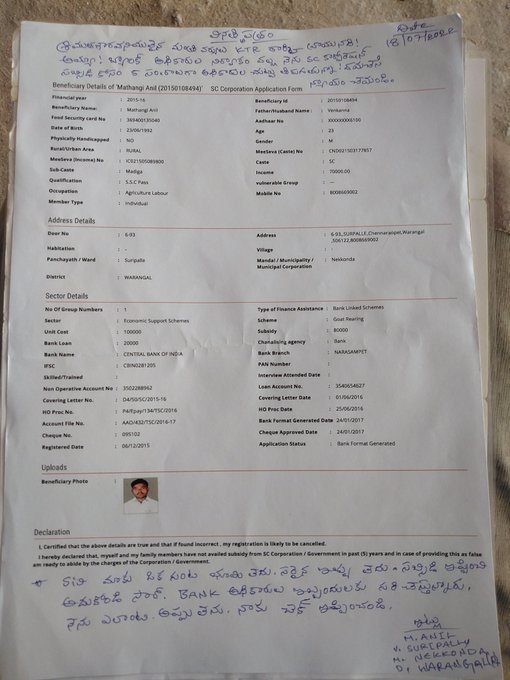 వినతి పత్రం
Date
18/07/2022
Beneficiary Details of 'Mathangi Anil (20150108494)' SC Corporation Application Form
Financial year : 2015-16 Beneficiary Id : 20150108494
Beneficiary Name: : Mathangi Anil Father/Husband Name : Venkanna
Food Security card No : 369400135040 Aadhaar No : XXXXXXXX6100
Date of Birth : 23/06/1992 Age : 23
Physically Handicapped : NO Gender : M
Rural/Urban Area : RURAL MeeSeva (Caste) No : CND021503177857
MeeSeva (Income) No : IC021505089800 Caste : SC
Sub-Caste : Madiga Income : 70000.00
Qualification : S.S.C Pass vulnerable Group : ---
Occupation : Agriculture Labour Mobile No : 8008669002
Member Type : Individual
Address Details
Door No : 6-93 Address : 6-93,,SURPALLE,Chennaraopet,Warangal
,506122,8008669002
Habitation : - Village : -
Panchayath / Ward : Suripalle Mandal / Municipality / Municipal Corporation : Nekkonda
District : WARANGAL
Sector Details
No Of Group Numbers : 1 Type of Finance Assistance : Bank Linked Schemes
Sector : Economic Support Schemes Scheme : Goat Rearing
Unit Cost : 100000 Subsidy : 80000
Bank Loan : 20000 Chanalising agency : Bank
Bank Name : CENTRAL BANK OF INDIA Bank Branch : NARASAMPET
IFSC : CBIN0281205 PAN Number :
Skilled/Trained : Interview Attended Date :
Non Operative Account No : 3502288962 Loan Account No. : 3540654627
Covering Letter No. : D4/50/SC/2015-16 Covering Letter Date : 01/06/2016
HO Proc No. : P4/Epay/134/TSC/2016 HO Proc Date : 25/06/2016
Account File No. : AAO/432/TSC/2016-17 Bank Format Generated Date : 24/01/2017
Cheque No. : 095102 Cheque Approved Date : 24/01/2017
Registered Date : 06/12/2015 Application Status : Bank Format Generated
Uploads
Beneficiary Photo :
Declaration
I, Certified that the above details are true and that if found incorrect , my registration is likely to be cancelled.
I hereby declared that, myself and my family members have not availed subsidy from SC Corporation / Government in past (5) years and in case of providing this as false
am ready to abide by the charges of the Corporation / Government.
ఇట్లు
M. ANIL
V. SURIPALLY
M. NEKKONDA
D. WARANGAL